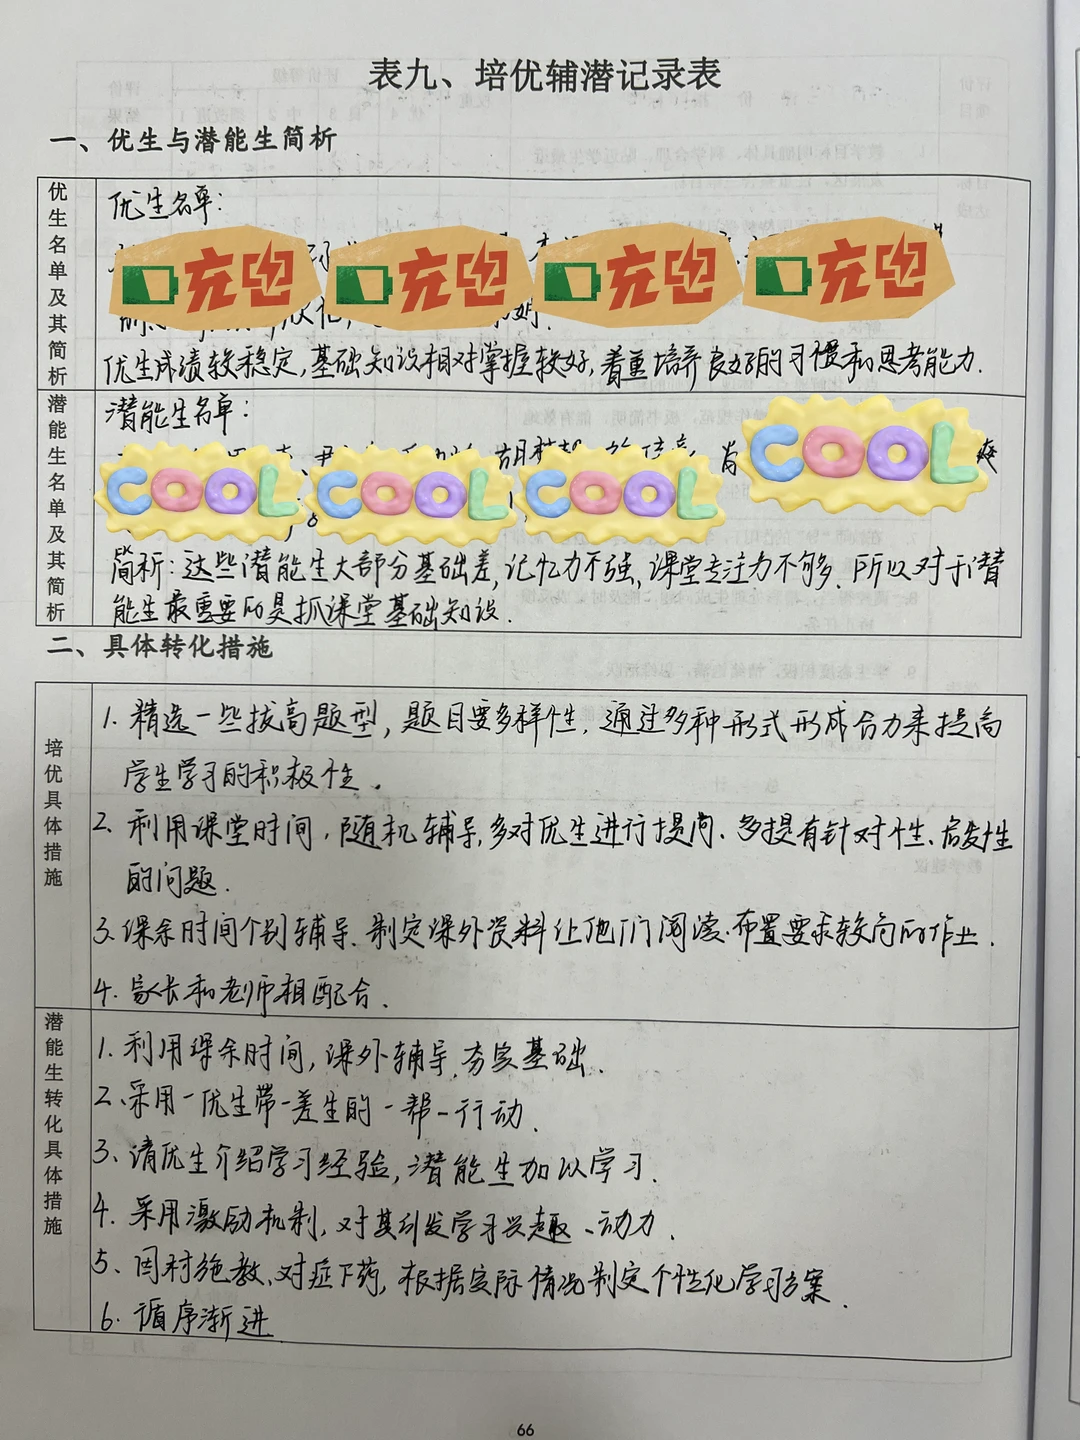 表九、培优辅潜记录表
一、优生与潜能生简析
优生名单及其简析
优生名单：
充电 充电 充电 充电
优生成绩较稳定，基础知识相对掌握较好，着重培养良好的习惯和思考能力.
潜能生名单及其简析
潜能生名单：
COOL COOL COOL COOL
简析：这些潜能生大部分基础差，记忆力不强，课堂专注力不够. 所以对于潜
能生最重要的是抓课堂基础知识.
二、具体转化措施
培优具体措施
1. 精选一些拔高题型，题目要多样性，通过多种形式形成合力来提高
学生学习的积极性.
2. 利用课堂时间，随机辅导，多对优生进行提问、多提有针对性、启发性
的问题.
3.课余时间个别辅导、制定课外资料让他们阅读、布置要求较高的作业.
4. 家长和老师相配合.
潜能生转化具体措施
1. 利用课余时间，课外辅导、夯实基础.
2、采用一优生带一差生的一帮一行动.
3、请优生介绍学习经验，潜能生加以学习.
4. 采用激励机制，对其引发学习兴趣、动力.
5、因材施教、对症下药，根据实际情况制定个性化学习方案.
6. 循序渐进
66